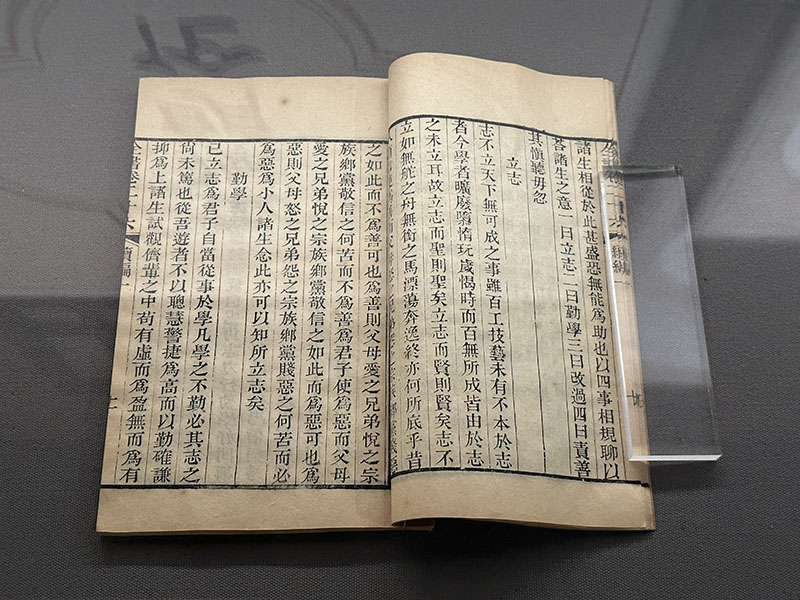 諸生相從於此甚盛恐無能爲助也以四事相規聊以
答諸生之意一曰立志二曰勤學三曰改過四曰責善
其愼聽毋忽
立志
志不立天下無可成之事雖百工技藝未有不本於志
者今學者曠廢墮惰玩歲愒時而百無所成皆由於志
之未立耳故立志而聖則聖矣立志而賢則賢矣志不
立如無舵之舟無銜之馬漂蕩奔逸終亦何所底乎昔
之如此而不爲善可也爲善則父母愛之兄弟悅之宗
族鄉黨敬信之何苦而不爲善爲君子使爲惡而父母
愛之兄弟悅之宗族鄉黨敬信之如此而爲惡可也爲
惡則父母怒之兄弟怨之宗族鄉黨賤惡之何苦而必
爲惡爲小人諸生念此亦可以知所立志矣
勤學
已立志爲君子自當從事於學凡學之不勤必其志之
尚未篤也從吾遊者不以聰慧警捷爲高而以勤確謙
抑爲上諸生試觀儕輩之中苟有虛而爲盈無而爲有
全書卷二十六 續編一